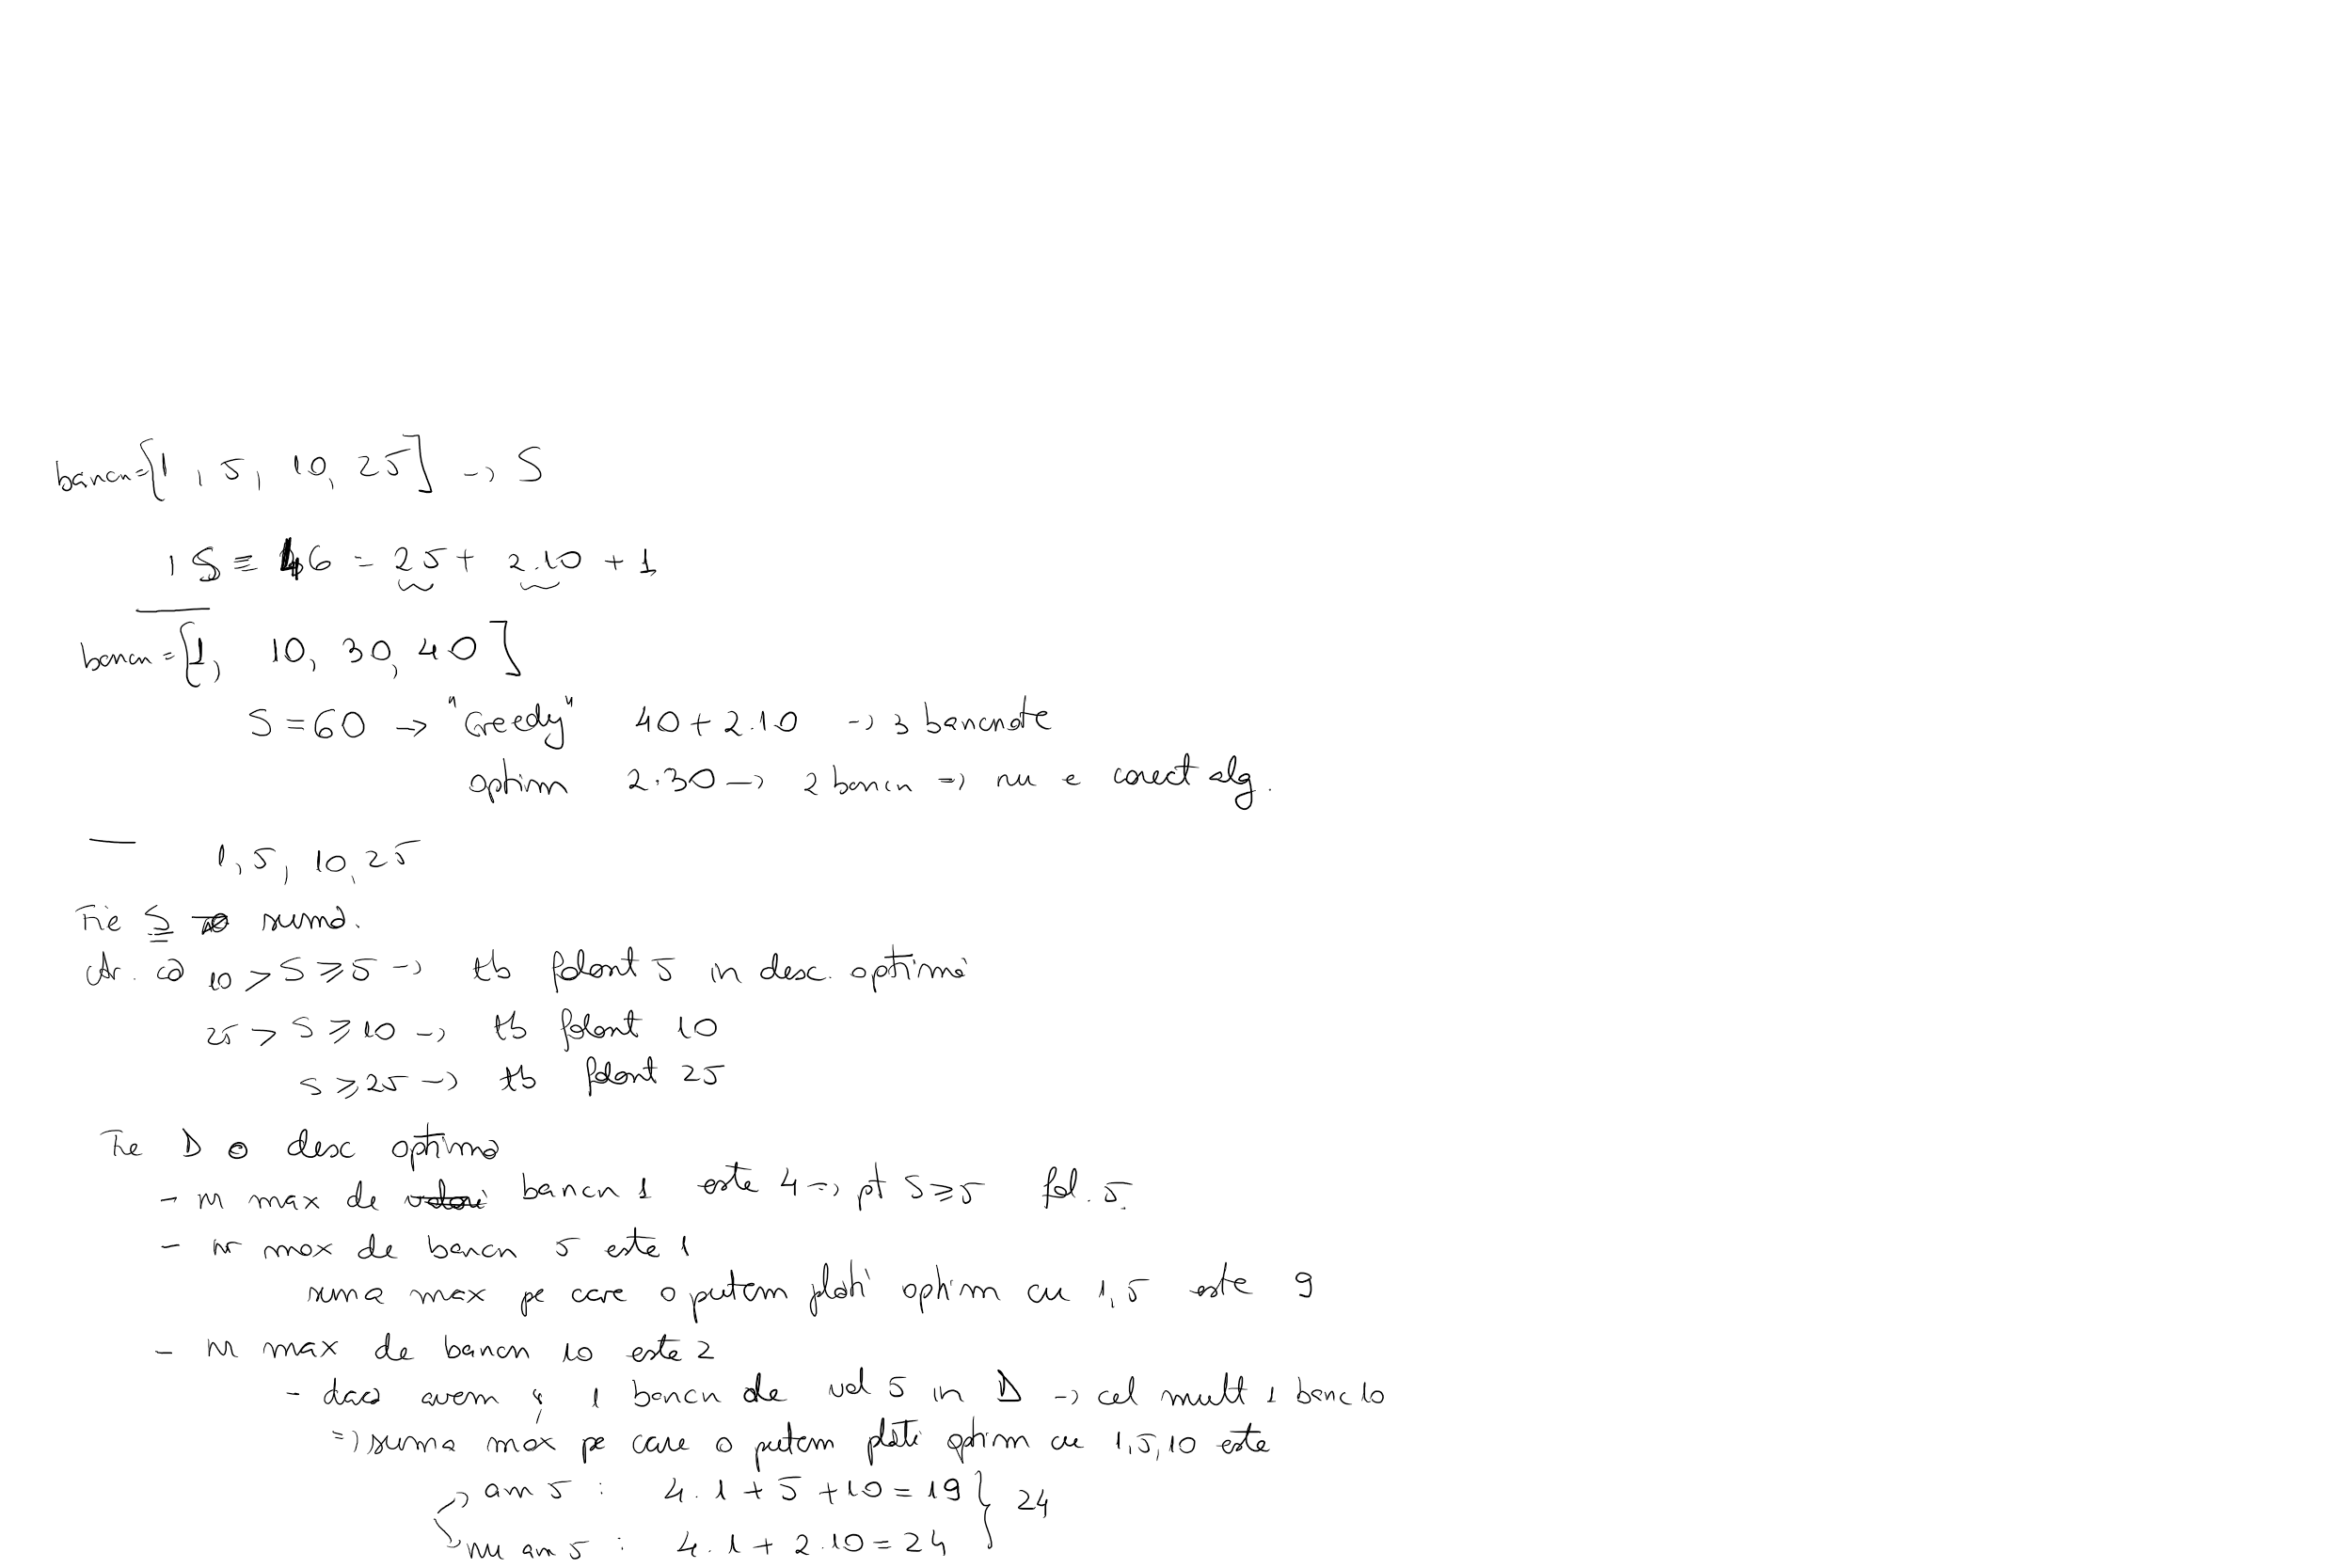 bancn={1, 5, 10, 25] -> S
1 S = 46 = 25 + 2.10 + 1
bancn={1, 10, 30, 40]
S = 60 -> "Greedy" 40 + 2.10 -> 3 bancnote
optim 2.30 -> 2 bancn => nu e corect alg.
1, 5, 10, 25
Fie S suma.
Ar. că 10 > S ⩾ 5 -> tb folosit 5 in desc. optimă
25 > S ⩾ 10 -> tb folosit 10
S ⩾ 25 -> tb folosit 25
Fie D o desc optimă
- nr max de bancn 1 este 4 => pt S ⩾ 5 fol. 5.
- nr max de bancn 5 este 1
suma max pe care o putem plăti optim cu 1, 5 este 9
- nr max de bancn 10 este 2
- dacă avem și 1 bancn de val 5 in D -> cel mult 1 banc 10
=> suma max pe care o putem plăti optim cu 1, 5, 10 este
am 5 : 4.1 + 5 + 10 = 19 } 24
nu am 5 : 4.1 + 2.10 = 24